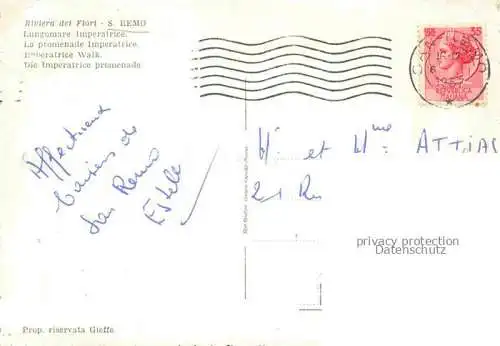 Riviera dei Fiori - S. REMO
Lungomare Imperatrice.
La promenade Imperatrice.
Imperatrice Walk.
Die Imperatrice promenade
Affectueux
baisers de
San Remo
Estele
55 55
Mr et Mme ATTIAS
21 Ru
privacy protection
Datenschutz
Prop. riservata Gieffe.